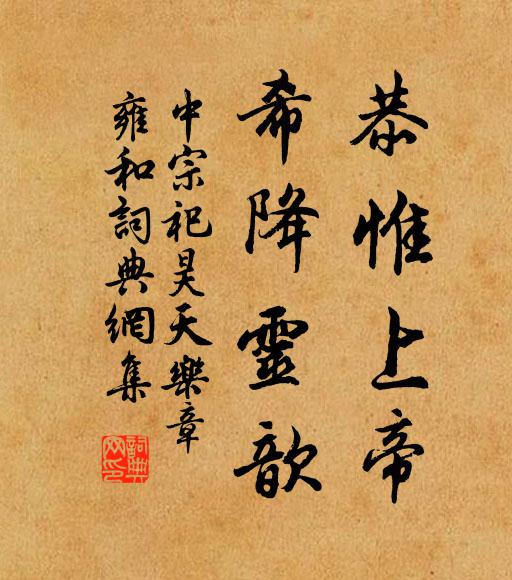 恭惟上帝
希降靈歆
中宗祀昊天樂章
雍和詞典網集
詞典
网印